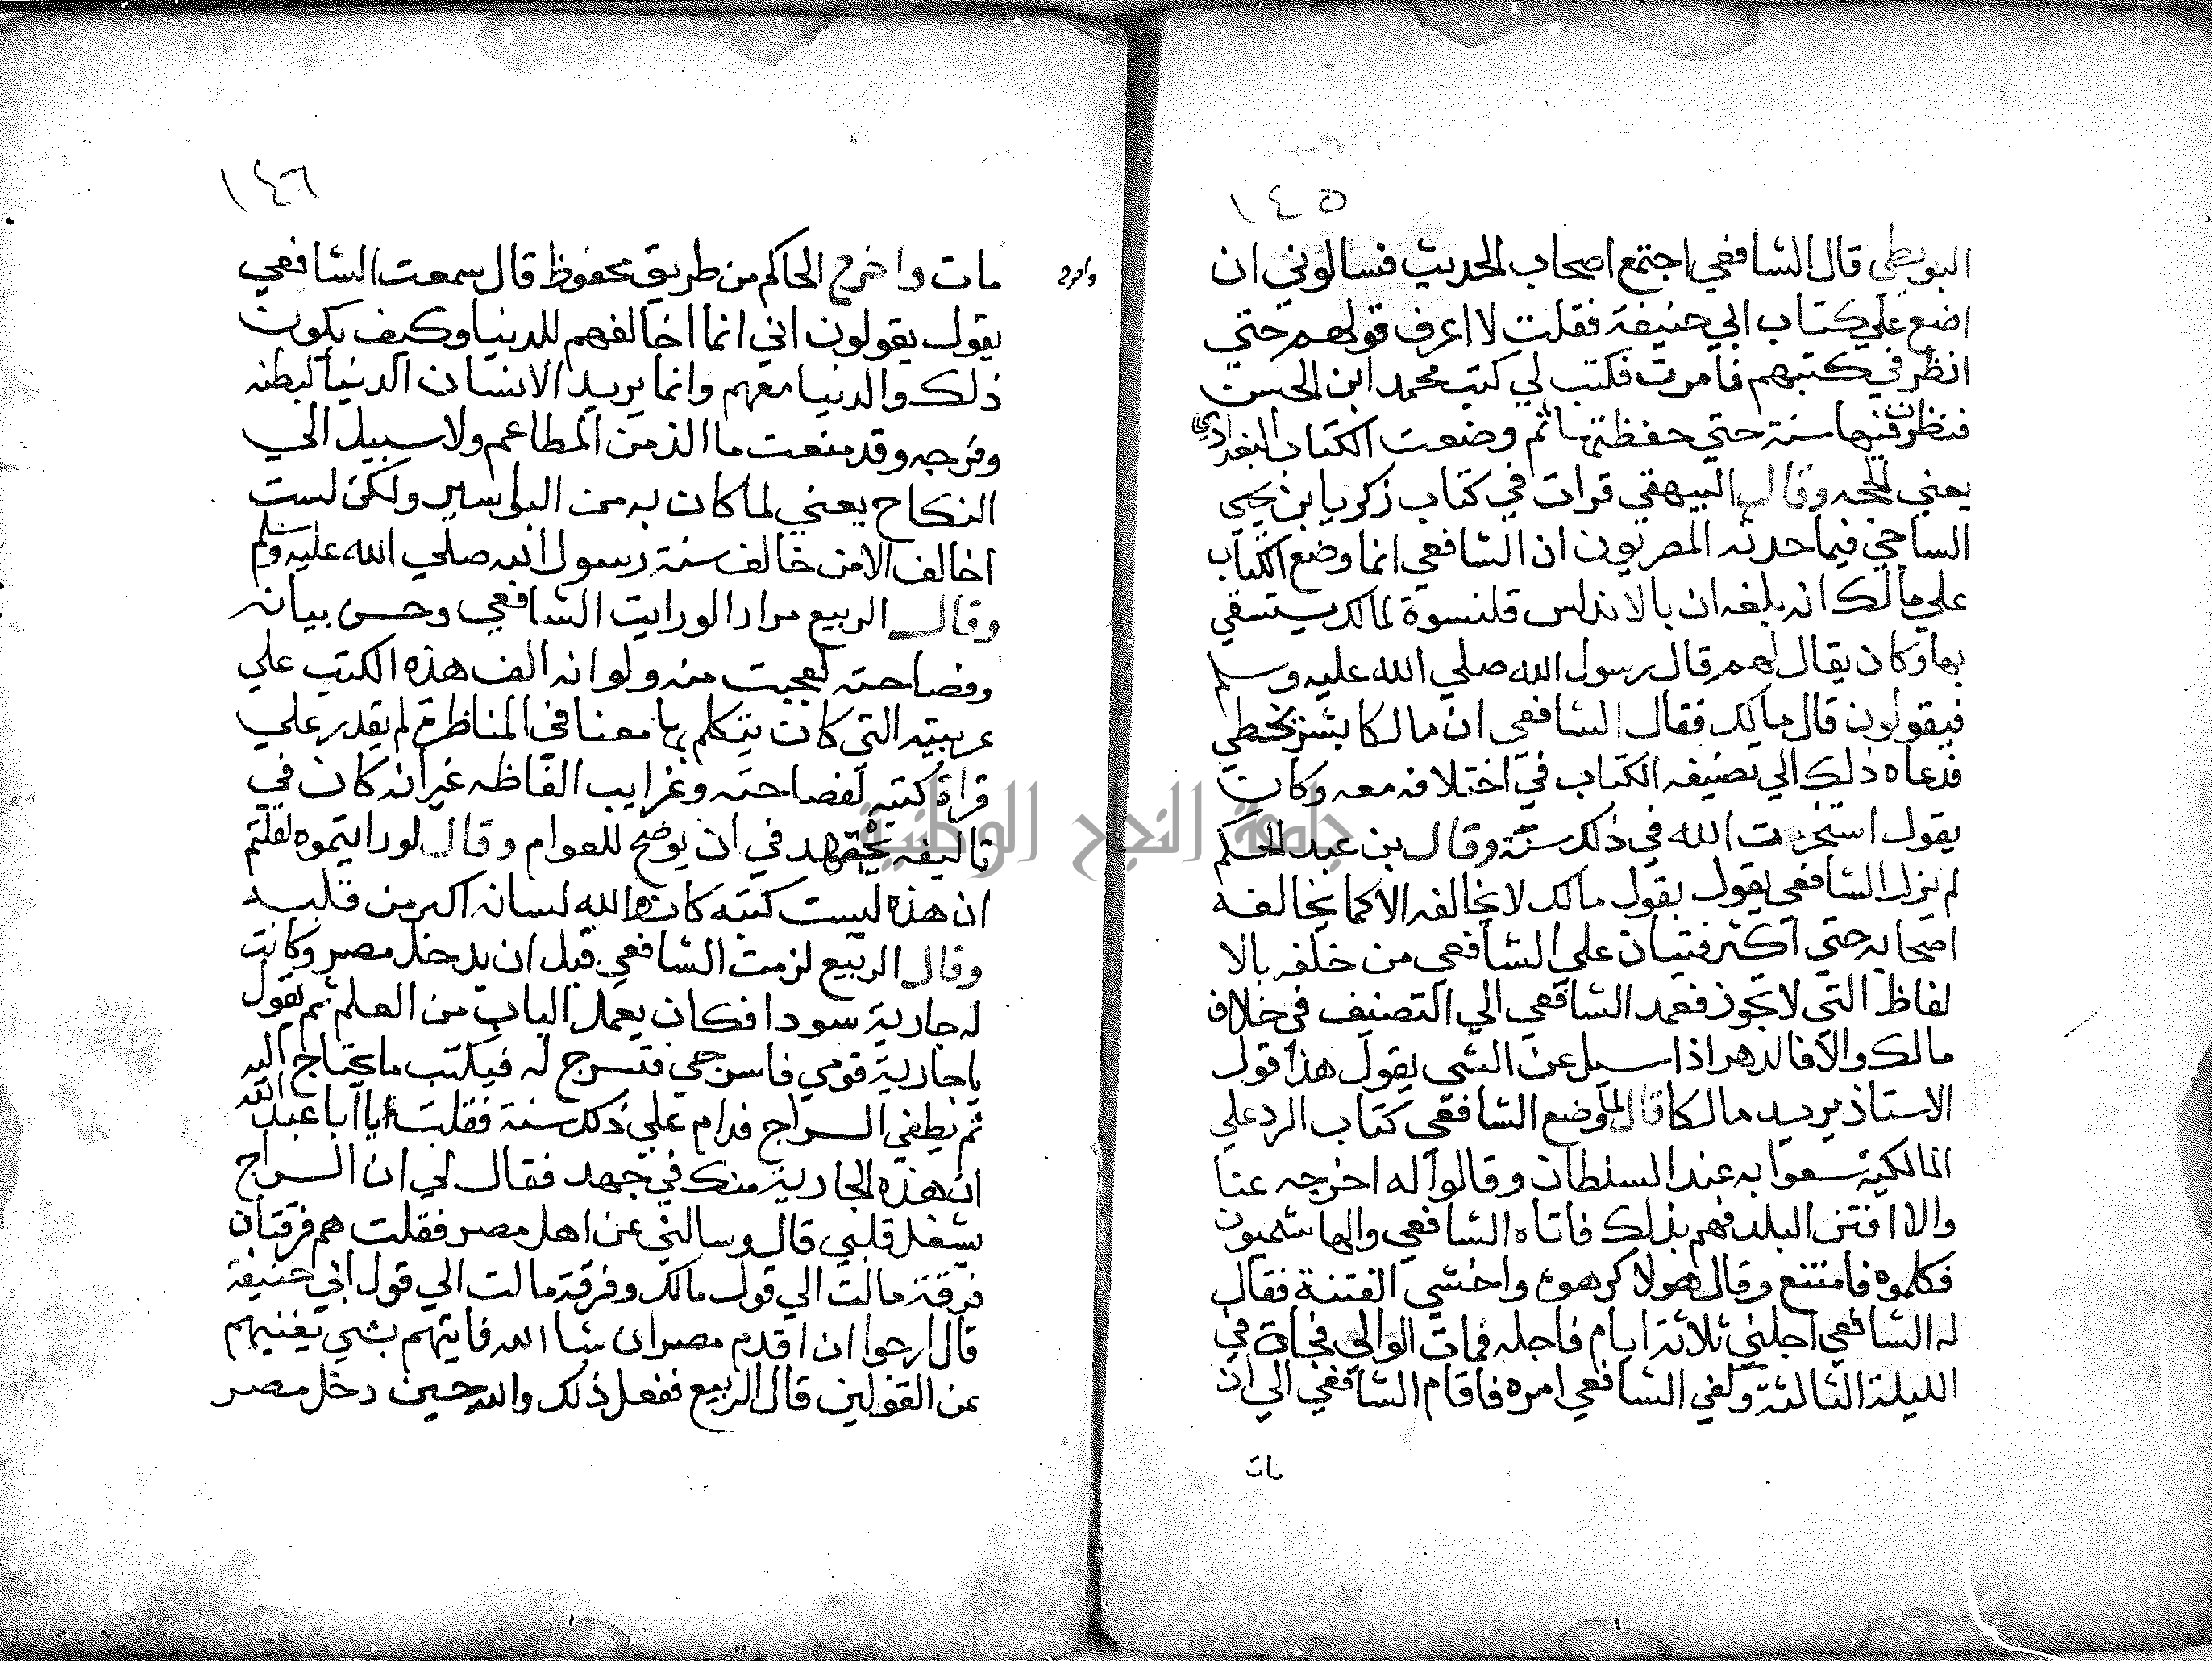 ١٤٥
البويطي قال الشافعي اجتمع اصحاب الحديث فسالوني ان
اضع علي كتاب ابي حنيفة فقلت لا اعرف قولهم حتي
انظر في كتبهم فامرت فكتب لي كتب محمد ابن الحسن
فنظرت فيها سنة حتي حفظتها ثم وضعت الكتاب البغدادي
يعني الحجه وقال البيهقي قرات في كتاب زكريا بن يحيي
الساجي فيما حدثه المصريون ان الشافعي انما وضع الكتاب
علي مالك انه بلغه ان بالاندلس قلنسوة لمالك يستسقي
بها وكان يقال لهم قال رسول الله صلي الله عليه وسلم
فيقولون قال مالك فقال الشافعي ان مالكا بشر يخطي
فدعاه ذلك الي تصنيفه الكتاب في اختلافه معه وكان
يقول استخرت الله في ذلك سنة وقال بن عبد الحكم
لم يزل الشافعي يقول بقول مالك لا يخالفه الا كما يخالفه
اصحابه حتي اكثر فتيان علي الشافعي من خلفه بالا
لفاظ التي لا تجوز فعمد الشافعي الي التصنيف في خلاف
مالك والا فالدهر اذا سيل عن الشي يقول هذا قول
الاستاذ يريد مالكا قال لما وضع الشافعي كتاب الرد علي
المالكية سعوا به عند السلطان وقالوا له اخرجه عنا
والا افتتن البلد فهم بذلك فاتاه الشافعي والهاشميون
فكلموه فامتنع وقال هولا كرهوك واخشي الفتنة فقال
له الشافعي اجلني ثلاثة ايام فاجله فمات الوالي فجاة في
الليلة الثالثة وكفي الشافعي امره فاقام الشافعي الي ان
مات
١٤٦
مات واخرج الحاكم من طريق محفوظ قال سمعت الشافعي
يقول يقولون اني انما اخالفهم للدنيا وكيف يكون
ذلك والدنيا معهم وانما يريد الانسان الدنيا لبطنه
وفرجه وقد منعت ما الذ من المطاعم ولا سبيل الي
النكاح يعني لما كان به من البواسير ولكن لست
اخالف الا من خالف سنة رسول الله صلي الله عليه وسلم
وقال الربيع مرارا لو رايت الشافعي وحسن بيانه
وفصاحته لعجبت منه ولو انه الف هذه الكتب علي
عربيته التي كان يتكلم بها معنا في المناظرة لم يقدر علي
قراة كتبه لفصاحته وغرايب الفاظه غير انه كان في
تاليفه يجتهد في ان يوضح للعوام وقال لو رايتموه لقلتم
ان هذه ليست كتبه كان والله لسانه اكبر من قلبه
وقال الربيع لزمت الشافعي قبل ان يدخل مصر وكانت
له جارية سودا فكان يعمل الباب من العلم ثم يقول
يا جارية قومي فاسرجي فتسرج له فيكتب ما يحتاج اليه
ثم يطفي السراج فدام علي ذلك سنة فقلت يا ابا عبد الله
ان هذه الجارية منك في جهد فقال لي ان السراج
يشغل قلبي قال وسالني عن اهل مصر فقلت هم فرقتان
فرقة مالت الي قول مالك وفرقة مالت الي قول ابي حنيفة
قال ارجوا ان اقدم مصر ان شا الله فاتيهم بشي يغنيهم
عن القولين قال الربيع ففعل ذلك والله حين دخل مصر
جامعة النجاح الوطنية